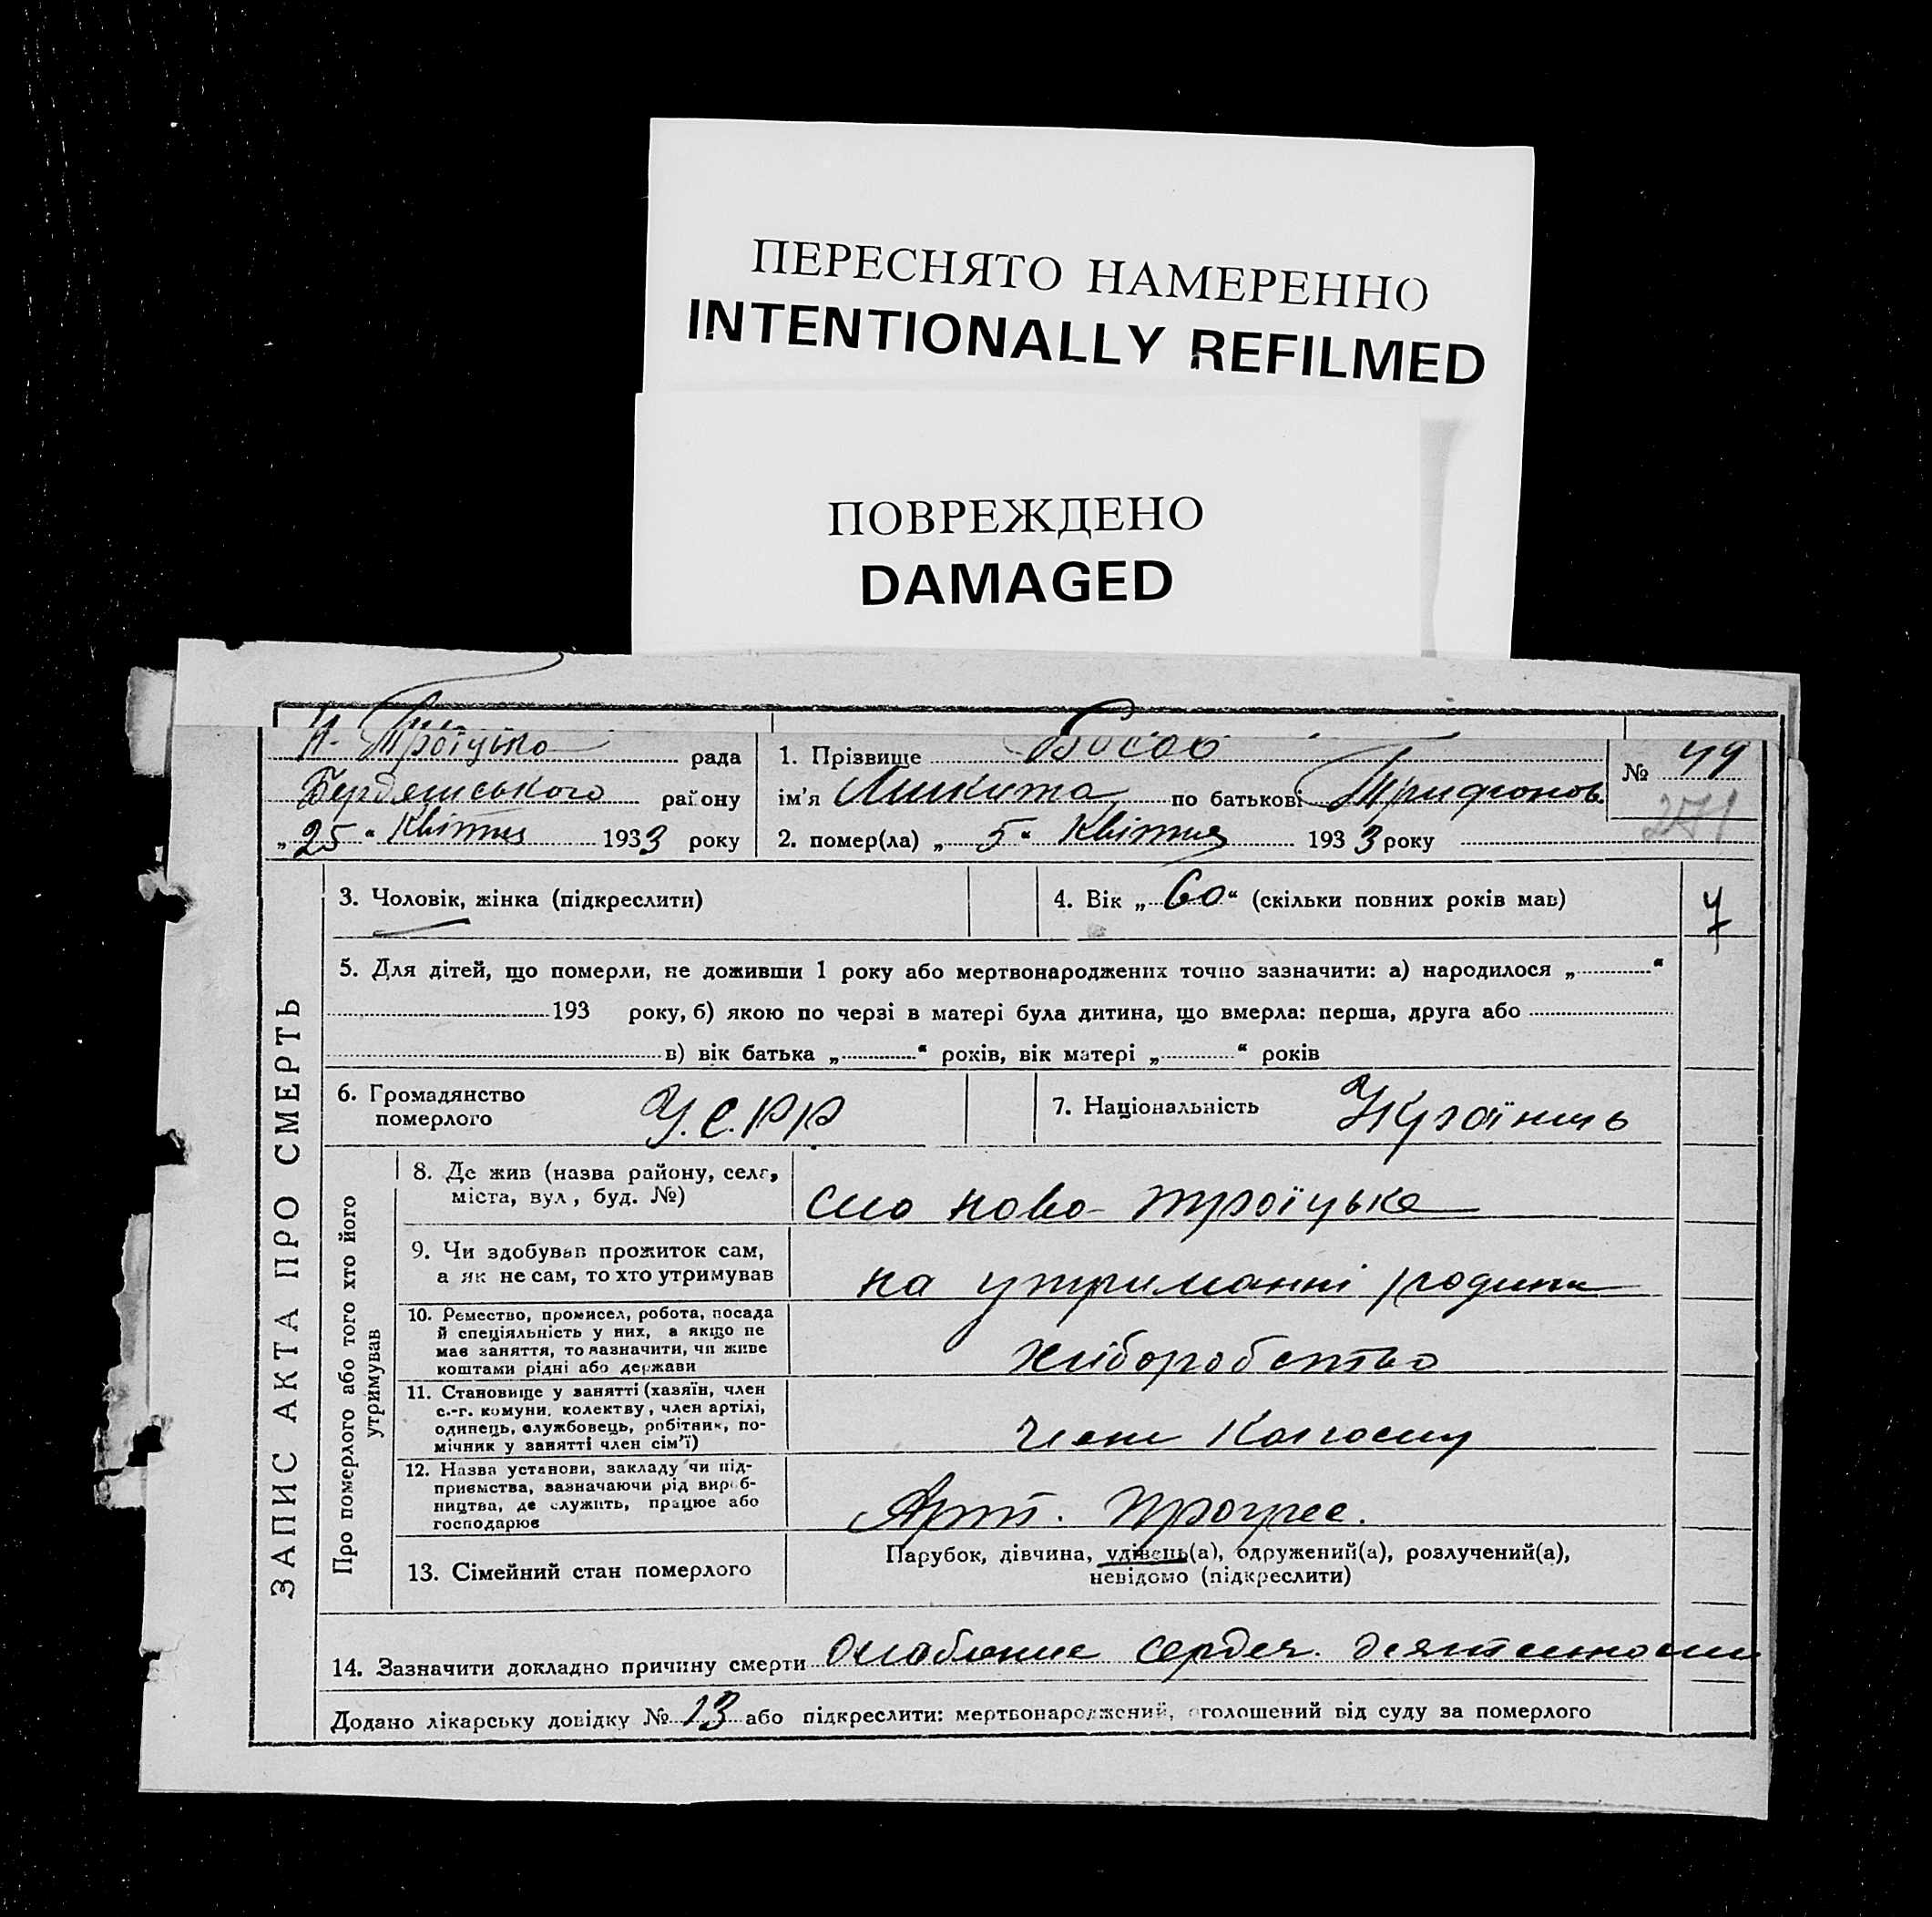 ПЕРЕСНЯТО НАМЕРЕННО
INTENTIONALLY REFILMED
ПОВРЕЖДЕНО
DAMAGED
Н-Троіцька рада
Бердянського району
„ 25 “ Квітня 1933 року
1. Прізвище Босов
ім'я Микита по батькові Трифонов.
2. помер(ла) „ 5 “ Квітня 1933 року
№ 44
271
ЗАПИС АКТА ПРО СМЕРТЬ
3. Чоловік, жінка (підкреслити)
4. Вік „ 60 “ (скільки повних років мав)
5. Для дітей, що померли, не доживши 1 року або мертвонароджених точно зазначити: а) народилося „ “
193 року, б) якою по черзі в матері була дитина, що вмерла: перша, друга або
в) вік батька „ “ років, вік матері „ “ років
6. Громадянство
померлого У.С.Р.Р.
7. Національність Українець
Про померлого або того хто його
утримував
8. Де жив (назва району, села,
міста, вул, буд. №)
село Ново-Троїцьке
9. Чи здобував прожиток сам,
а як не сам, то хто утримував
на утриманні родини
10. Ремество, промисел, робота, посада
й спеціяльність у них, а якщо не
має заняття, то зазначити, чи живе
коштами рідні або держави
хліборобство
11. Становище у занятті (хазяїн, член
с.-г. комуни, колективу, член артілі,
одинець, службовець, робітник, по-
мічник у занятті член сім'ї)
член Колгоспу
12. Назва установи, закладу чи під-
приємства, зазначаючи рід вироб-
ництва, де служить, працює або
господарює
Арт. Прогрес.
13. Сімейний стан померлого
Парубок, дівчина, удівець(а), одружений(а), розлучений(а),
невідомо (підкреслити)
14. Зазначити докладно причину смерти ослабление сердеч. деятельности
Додано лікарську довідку № 13 або підкреслити: мертвонароджений, оголошений від суду за померлого